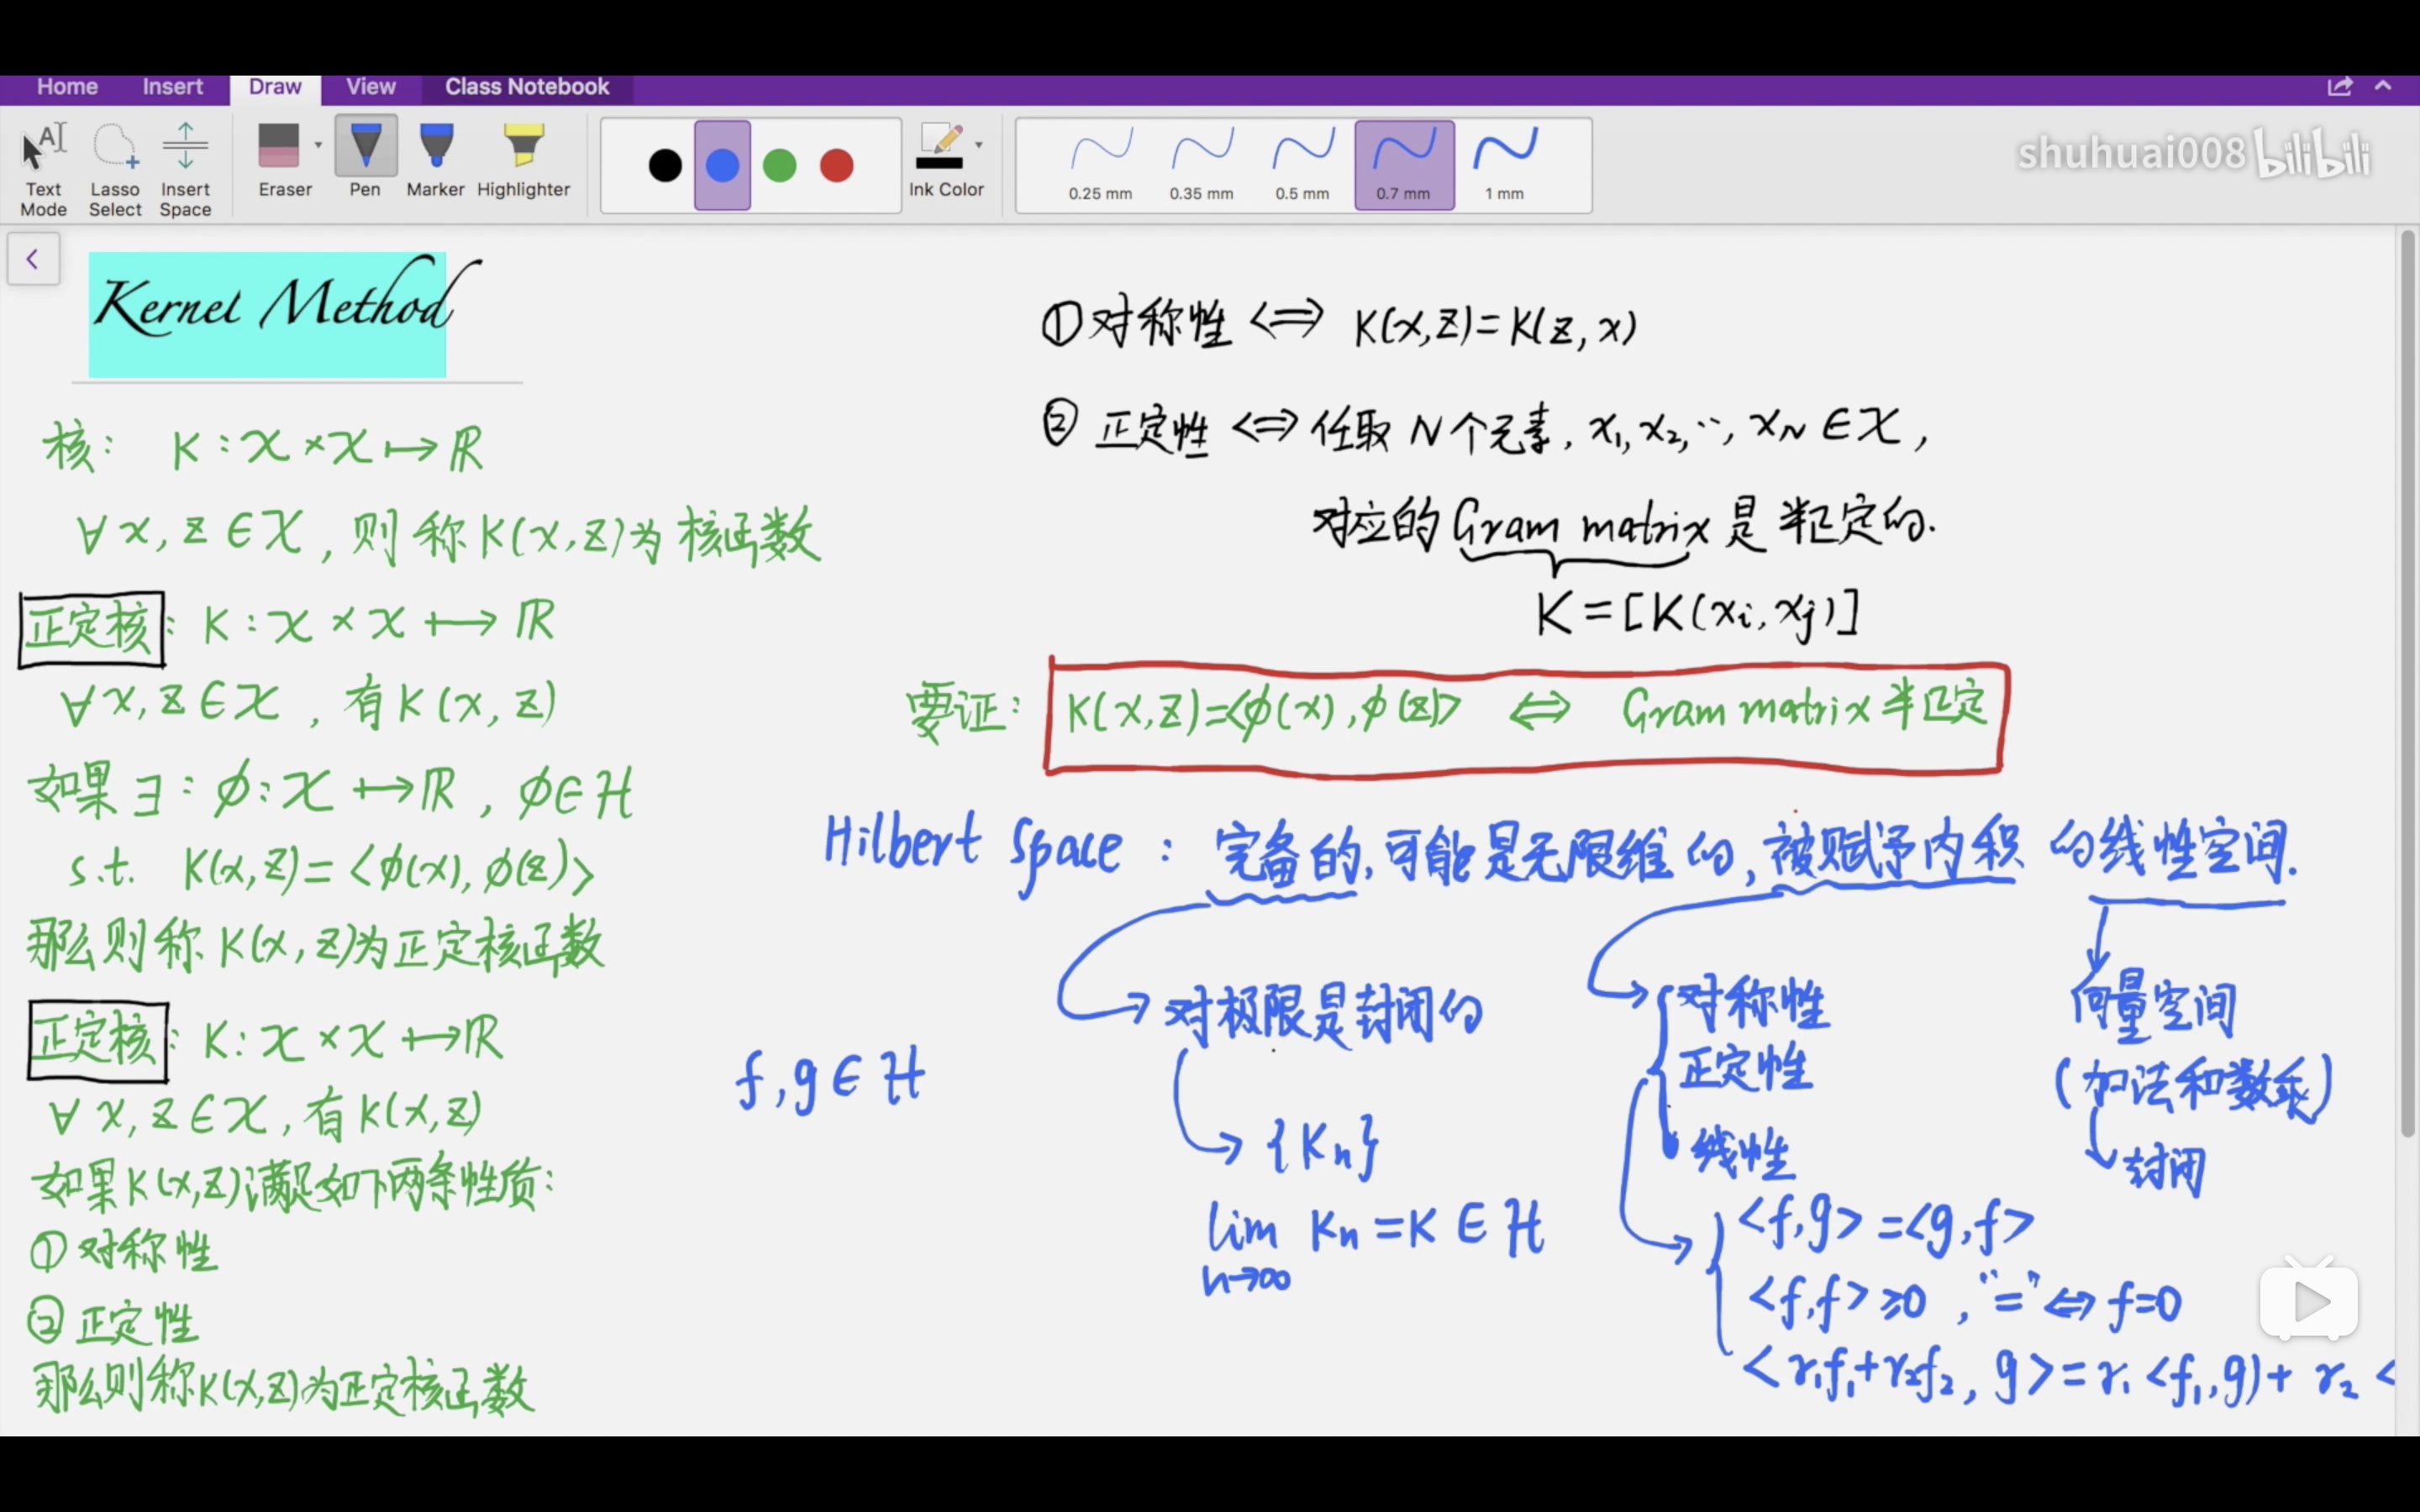 Home Insert Draw View Class Notebook
Text Mode Lasso Select Insert Space Eraser Pen Marker Highlighter Ink Color 0.25 mm 0.35 mm 0.5 mm 0.7 mm 1 mm
shuhuai008 bilibili
Kernel Method
核: K:𝒳×𝒳↦ℝ
∀x,z∈𝒳,则称K(x,z)为核函数
正定核: K:𝒳×𝒳↦ℝ
∀x,z∈𝒳,有K(x,z)
如果∃:ϕ:𝒳↦ℝ,ϕ∈ℋ
s.t. K(x,z)=<ϕ(x),ϕ(z)>
那么则称K(x,z)为正定核函数
正定核: K:𝒳×𝒳↦ℝ
∀x,z∈𝒳,有K(x,z)
如果K(x,z)满足如下两条性质:
①对称性
②正定性
那么则称K(x,z)为正定核函数
①对称性⇔K(x,z)=K(z,x)
②正定性⇔任取N个元素,x₁,x₂,⋯,x_N∈𝒳,
对应的Gram matrix是半正定的.
K=[K(xᵢ,xⱼ)]
要证: K(x,z)=<ϕ(x),ϕ(z)> ⇔ Gram matrix半正定
Hilbert Space: 完备的,可能是无限维的,被赋予内积的线性空间.
对极限是封闭的
f,g∈ℋ
{Kₙ}
lim Kₙ=K∈ℋ
n→∞
对称性
正定性
线性
<f,g>=<g,f>
<f,f>≥0,"="⇔f=0
<r₁f₁+r₂f₂,g>=r₁<f₁,g)+r₂<
向量空间
(加法和数乘)
封闭